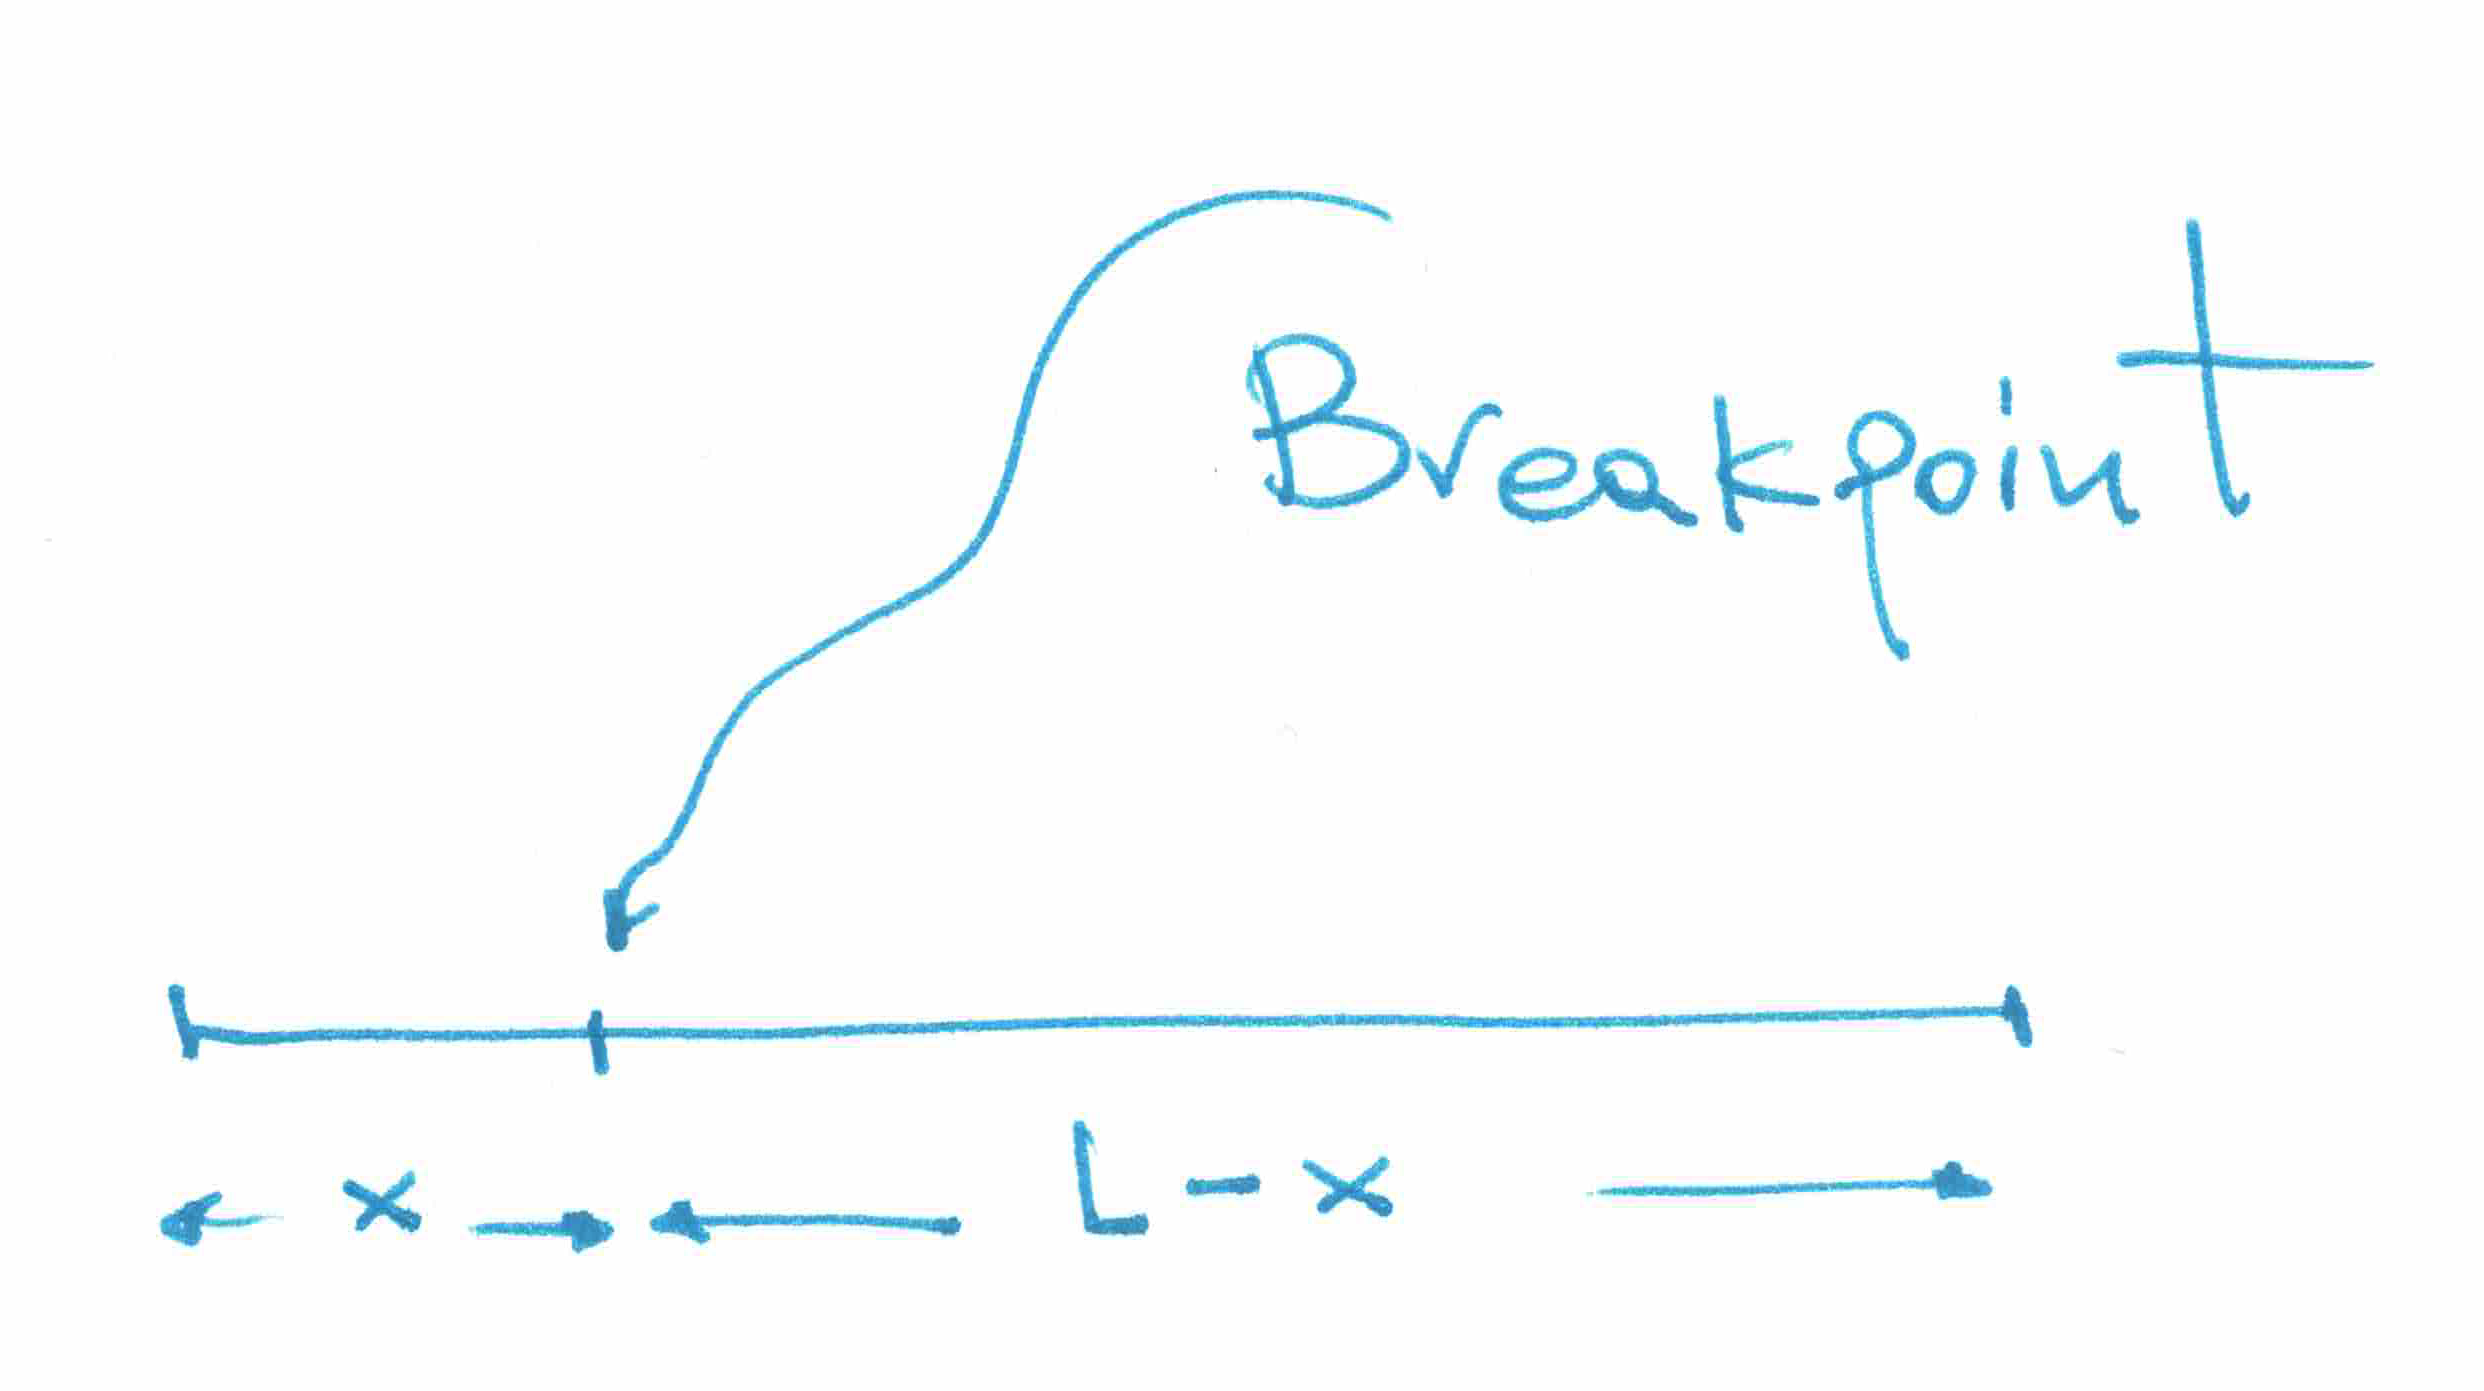 Breakpoint
x L-x